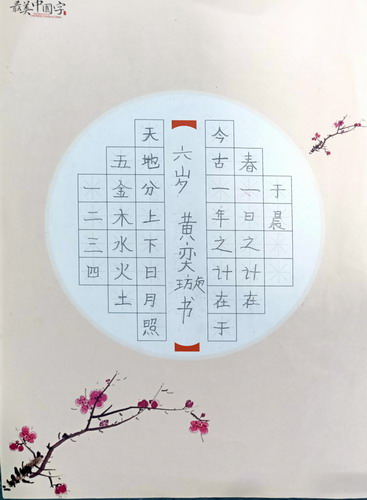 最美中国字
一二三四
五金木水火土
天地分上下日月照
今古一年之计在于
春一日之计在
于晨
六岁 黄奕璇书